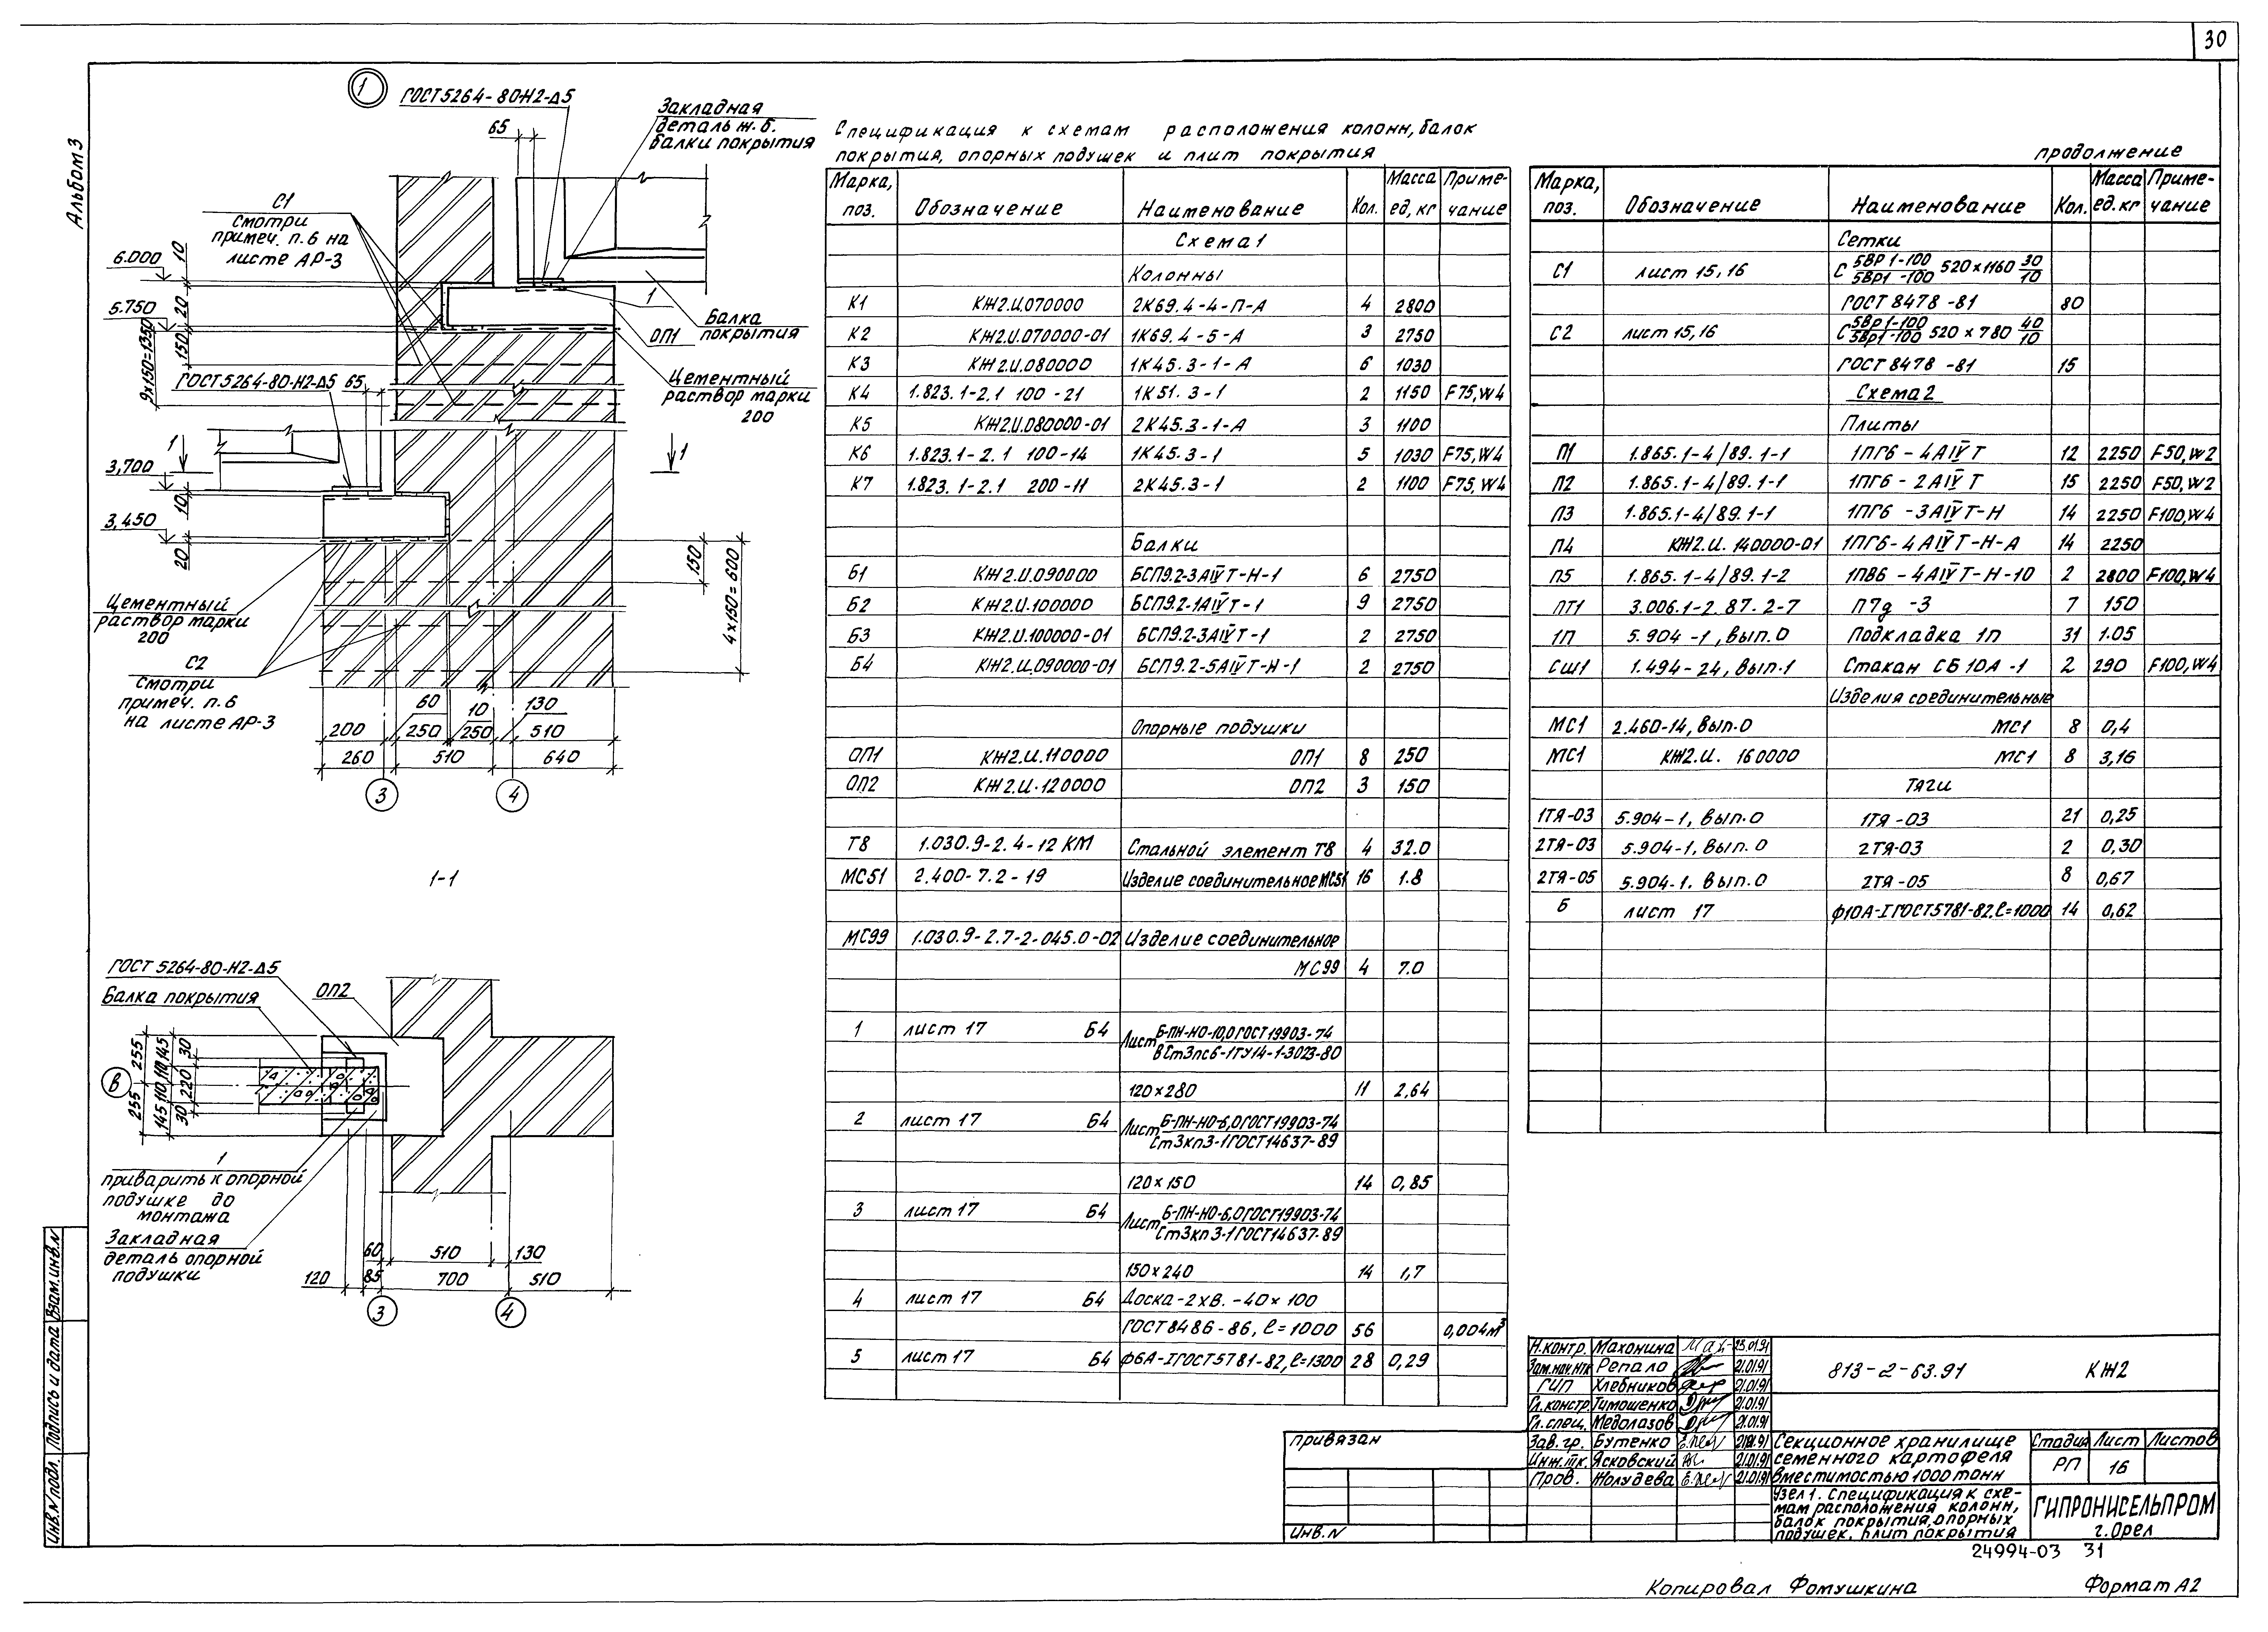 30
Альбом 3
1
ГОСТ 5264-80-Н2-Δ5
65
Закладная
деталь ж.б.
балки покрытия
С1
Смотри
примеч. п.6 на
листе АР-3
6.000
10
5.750
20
150
9х150=1350
1
ОП1
Балка
покрытия
Цементный
раствор марки
200
ГОСТ 5264-80-Н2-Δ5 65
1
1
3,700
10
3,450
20
150
4х150=600
Цементный
раствор марки
200
С2
Смотри
примеч. п.6
на листе АР-3
60
10
130
200
250
250
510
260
510
640
3
4
1-1
ГОСТ 5264-80-Н2-Δ5
Балка покрытия
ОП2
255
145
30
110
220
110
255
145
30
В
1
приварить к опорной
подушке до
монтажа
Закладная
деталь опорной
подушки
60
510
130
120
85
700
510
3
4
Спецификация к схемам расположения колонн, балок
покрытия, опорных подушек и плит покрытия
Марка, поз. Обозначение Наименование Кол. Масса ед, кг Приме-чание
Схема 1
Колонны
К1 КЖ2.И.070000 2К69.4-4-П-А 4 2800
К2 КЖ2.И.070000-01 1К69.4-5-А 3 2750
К3 КЖ2.И.080000 1К45.3-1-А 6 1030
К4 1.823.1-2.1 100-21 1К51.3-1 2 1150 F75,W4
К5 КЖ2.И.080000-01 2К45.3-1-А 3 1100
К6 1.823.1-2.1 100-14 1К45.3-1 5 1030 F75,W4
К7 1.823.1-2.1 200-11 2К45.3-1 2 1100 F75,W4
Балки
Б1 КЖ2.И.090000 БСП9.2-3АIVТ-Н-1 6 2750
Б2 КЖ2.И.100000 БСП9.2-1АIVТ-1 9 2750
Б3 КЖ2.И.100000-01 БСП9.2-3АIVТ-1 2 2750
Б4 КЖ2.И.090000-01 БСП9.2-5АIVТ-Н-1 2 2750
Опорные подушки
ОП1 КЖ2.И.110000 ОП1 8 250
ОП2 КЖ2.И.120000 ОП2 3 150
Т8 1.030.9-2.4-12 КМ Стальной элемент Т8 4 32.0
МС51 2.400-7.2-19 Изделие соединительное МС51 16 1.8
МС99 1.030.9-2.7-2-045.0-02 Изделие соединительное
МС99 4 7.0
1 лист 17 Б4 Лист Б-ПН-НО-10,0 ГОСТ 19903-74
ВСт3пс6-1ТУ14-1-3023-80
120х280 11 2,64
2 лист 17 Б4 Лист Б-ПН-НО-6,0 ГОСТ 19903-74
Ст3кп3-1 ГОСТ 14637-89
120х150 14 0,85
3 лист 17 Б4 Лист Б-ПН-НО-6,0 ГОСТ 19903-74
Ст3кп3-1 ГОСТ 14637-89
150х240 14 1,7
4 лист 17 Б4 Доска-2хв.-40х100
ГОСТ 8486-86, ℓ=1000 56 0,004м³
5 лист 17 Б4 ф6А-I ГОСТ 5781-82, ℓ=1300 28 0,29
продолжение
Марка, поз. Обозначение Наименование Кол. Масса ед. кг Приме-чание
Сетки
С1 лист 15,16 С 5ВР1-100/5Вр1-100 520х1160 30/10
ГОСТ 8478-81 80
С2 лист 15,16 С 5Вр1-100/5Вр1-100 520х780 40/10
ГОСТ 8478-81 15
Схема 2
Плиты
П1 1.865.1-4/89.1-1 1ПГ6-4АIVТ 12 2250 F50,W2
П2 1.865.1-4/89.1-1 1ПГ6-2АIVТ 15 2250 F50,W2
П3 1.865.1-4/89.1-1 1ПГ6-3АIVТ-Н 14 2250 F100,W4
П4 КЖ2.И.140000-01 1ПГ6-4АIVТ-Н-А 14 2250
П5 1.865.1-4/89.1-2 1ПВ6-4АIVТ-Н-10 2 2800 F100,W4
ПТ1 3.006.1-2.87.2-7 П7д-3 7 150
1П 5.904-1, вып.0 Подкладка 1п 31 1.05
СШ1 1.494-24, вып.1 Стакан СБ10А-1 2 290 F100,W4
Изделия соединительные
МС1 2.460-14, вып.0 МС1 8 0,4
МС1 КЖ2.И.160000 МС1 8 3,16
Тяги
1ТЯ-03 5.904-1, вып.0 1ТЯ-03 21 0,25
2ТЯ-03 5.904-1, вып.0 2ТЯ-03 2 0,30
2ТЯ-05 5.904-1. вып.0 2ТЯ-05 8 0,67
Б лист 17 ф10А-I ГОСТ 5781-82, ℓ=1000 14 0,62
Н.контр. Махонина 25.01.91
Зам.нач.НТК Репало 21.01.91
ГИП Хлебников 21.01.91
Гл.констр. Тимошенко 21.01.91
Гл.спец. Медолазов 21.01.91
Зав.гр. Бутенко 21.01.91
Инж.IIк. Ясковский 21.01.91
Пров. Жолудева 21.01.91
813-2-63.91 КЖ2
Секционное хранилище
семенного картофеля
вместимостью 1000 тонн
Стадия Лист Листов
РП 16
Узел 1. Спецификация к схе-
мам расположения колонн,
балок покрытия, опорных
подушек, плит покрытия
ГИПРОНИСЕЛЬПРОМ
г. Орел
привязан
Инв.N
Инв.N подл. Подпись и дата Взам.инв.N
24994-03 31
Копировал Фомушкина Формат А2